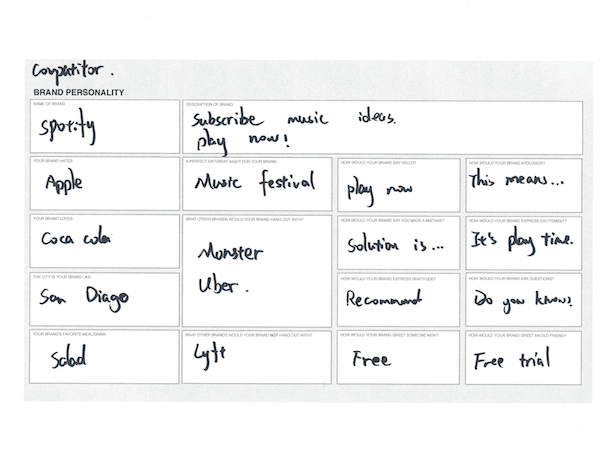 Competitor.
BRAND PERSONALITY
NAME OF BRAND
Spotify
DESCRIPTION OF BRAND
Subscribe music ideas.
play now!
YOUR BRAND HATES:
Apple
A PERFECT SATURDAY NIGHT FOR YOUR BRAND:
Music festival
HOW WOULD YOUR BRAND SAY HELLO?
play now
HOW WOULD YOUR BRAND APOLOGIZE?
This means...
YOUR BRAND LOVES:
Coca cola
WHAT OTHER BRANDS WOULD YOUR BRAND HANG OUT WITH?
Monster
Uber.
HOW WOULD YOUR BRAND SAY YOU MADE A MISTAKE?
Solution is...
HOW WOULD YOUR BRAND EXPRESS EXCITEMENT?
It's play time.
THE CITY IS YOUR BRAND LIKE:
San Diago
HOW WOULD YOUR BRAND EXPRESS GRATITUDE?
Recommend
HOW WOULD YOUR BRAND ASK QUESTIONS?
Do you know?
YOUR BRAND'S FAVORITE MEAL/DRINK:
Salad
WHAT OTHER BRANDS WOULD YOUR BRAND NOT HANG OUT WITH?
Lyft
HOW WOULD YOUR BRAND GREET SOMEONE NEW?
Free
HOW WOULD YOUR BRAND GREET AN OLD FRIEND?
Free trial